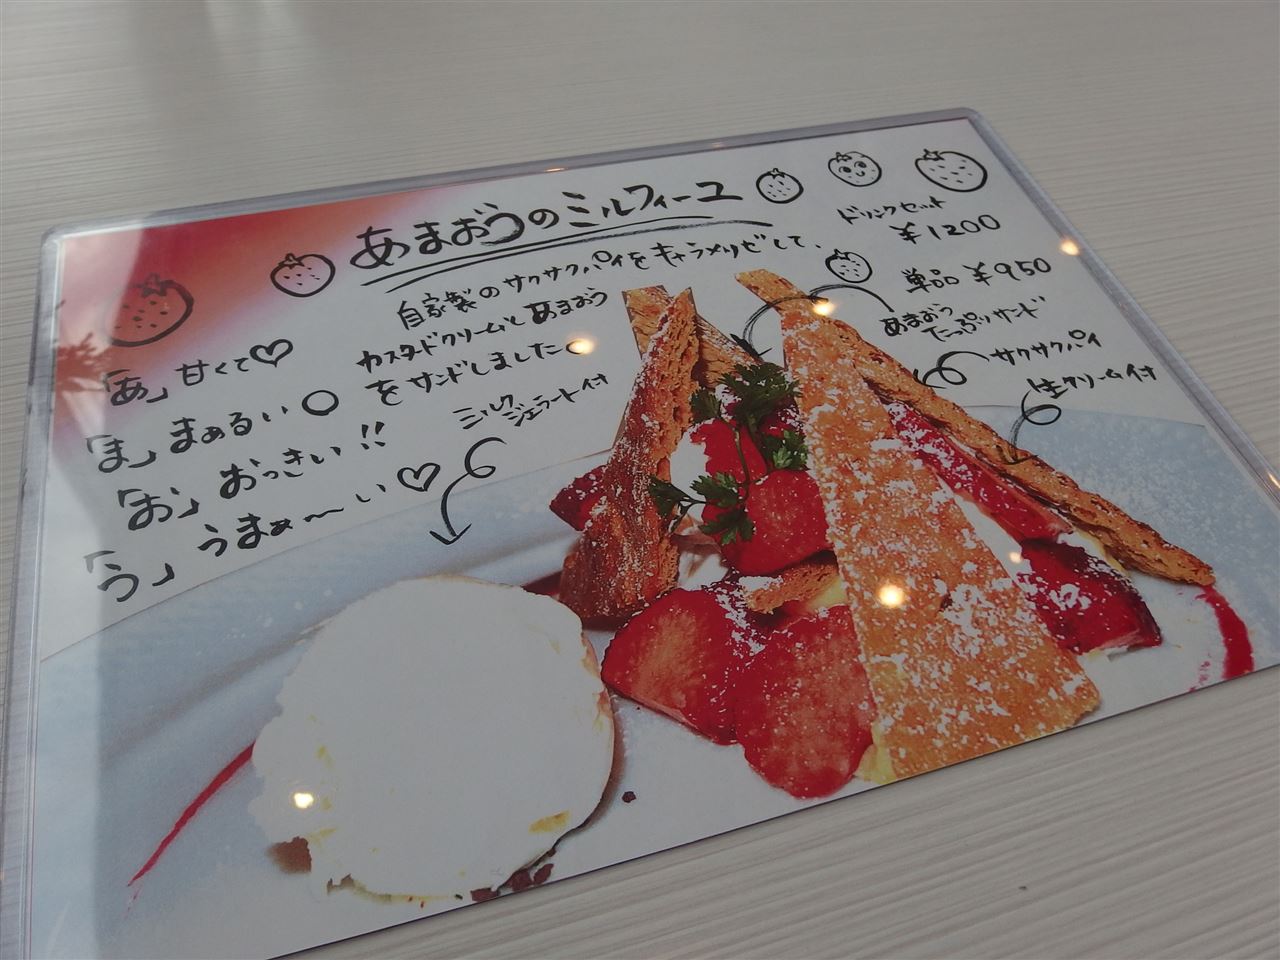 あまおうのミルフィーユ
自家製のサクサクパイをキャラメリゼして、
カスタードクリームとあまおう
をサンドしました。
「あ」甘くて♡
「ま」まぁるい○
「お」おっきい!!
「う」うまぁ～い♡
ミルク
ジェラート付
ドリンクセット
¥1200
単品 ¥950
あまおう
たっぷりサンド
サクサクパイ
生クリーム付